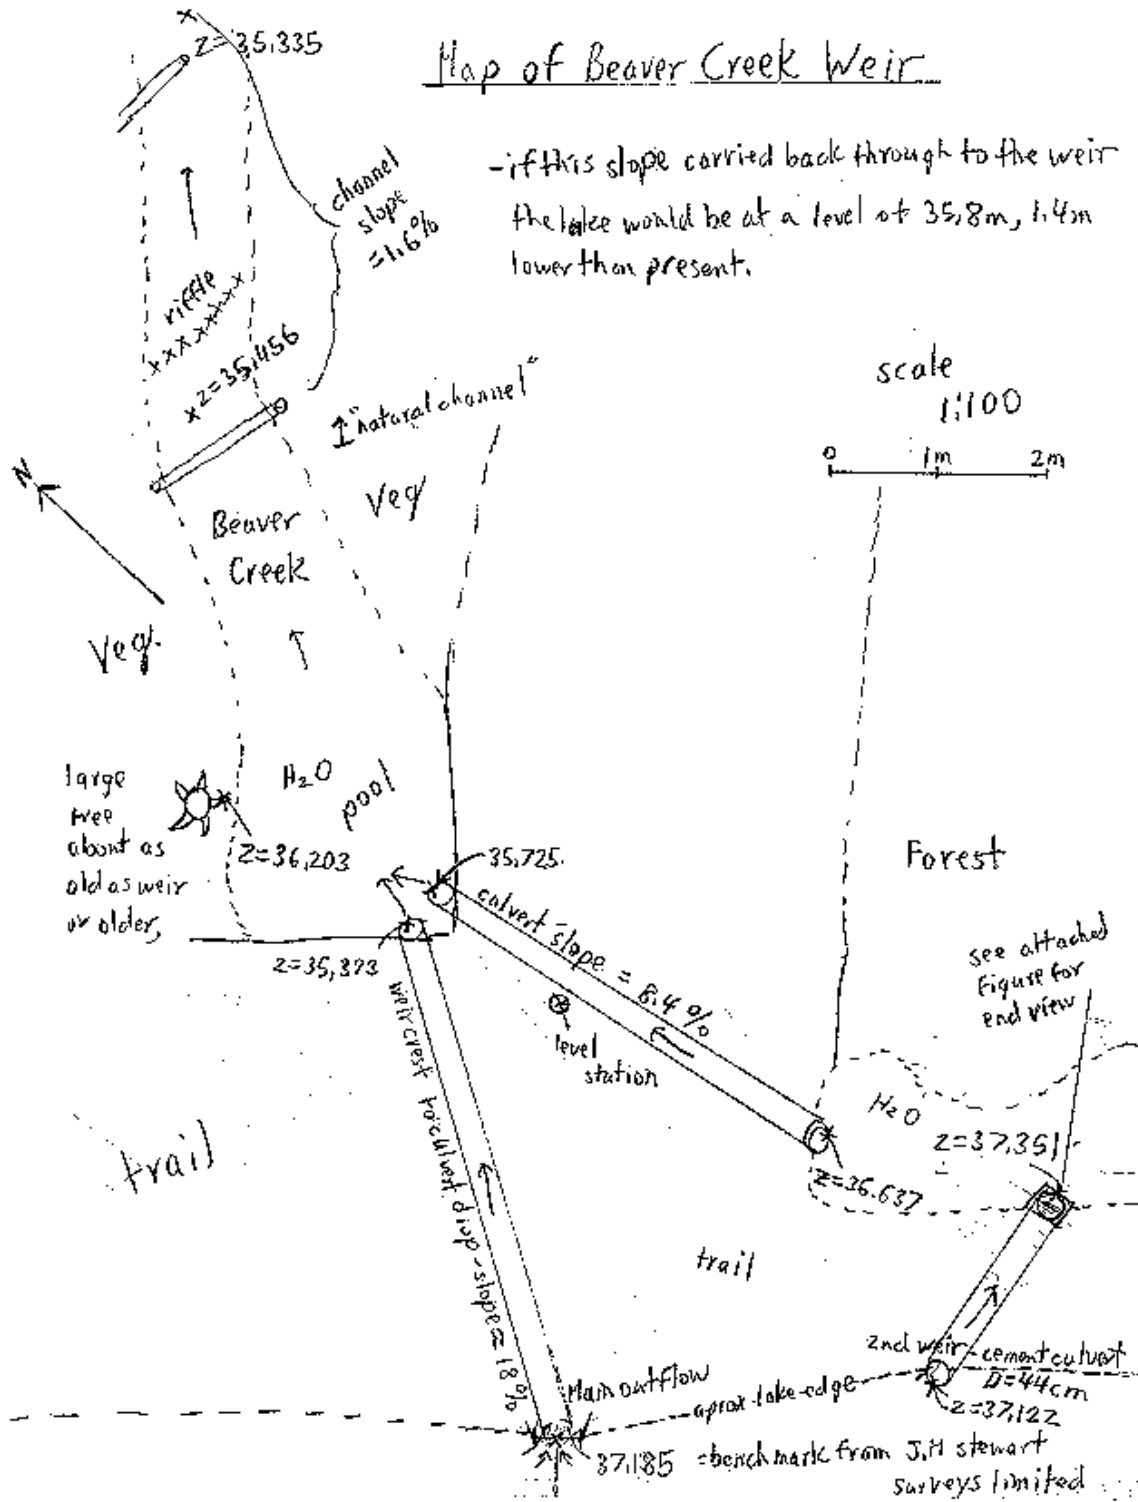 Map of Beaver Creek Weir
Z=35.335
- if this slope carried back through to the weir
the lake would be at a level of 35.8m, 1.4m
lower than present.
channel
slope
=1.6%
riffle
xxxxxxxx
x Z=35.456
"natural channel"
scale
1:100
0 1m 2m
N
Veg
Beaver
Creek
Veg.
H₂O
pool
large
tree
about as
old as weir
or older,
Z=36,203
35.725
Forest
Z=35,373
culvert slope = 8.4%
see attached
Figure for
end view
level
station
weir crest to culvert dwnp-slope≈18%
H₂O
Z=37.351
Z=36.637
trail
trail
2nd weir-cement culvert
D=44cm
Z=37.122
Main outflow
aprox-lake-edge
37.185 =benchmark from J.H stewart
surveys limited